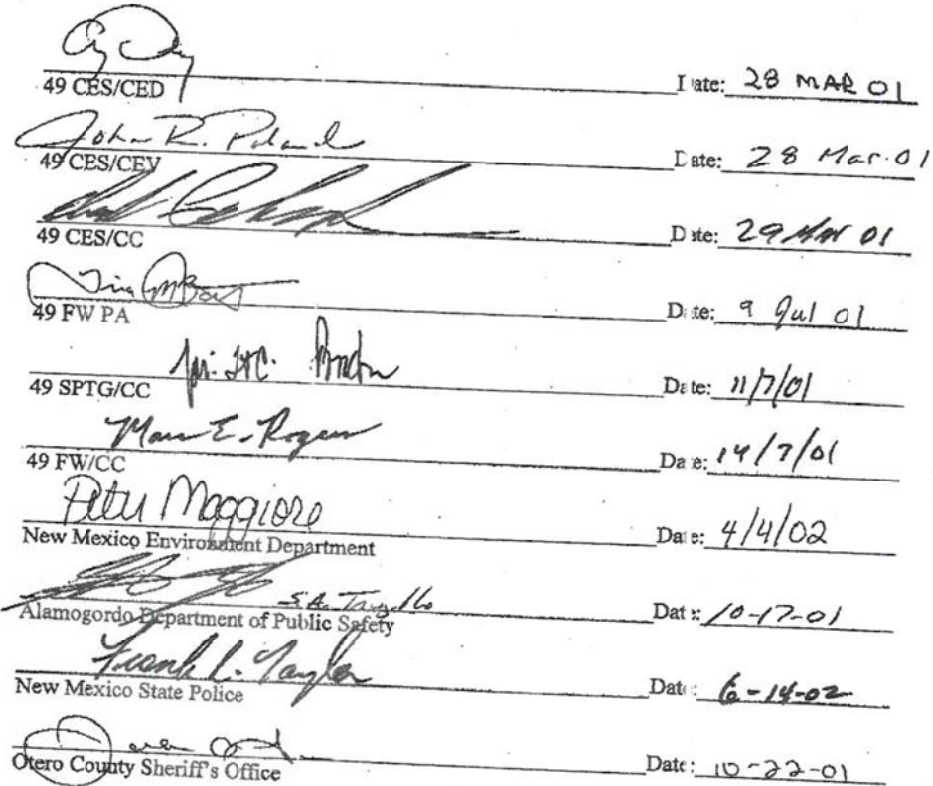 49 CES/CED Date: 28 MAR 01
John R. Poland
49 CES/CEV Date: 28 Mar. 01
49 CES/CC Date: 29 Mar 01
Tina
49 FW PA Date: 9 Jul 01
49 SPTG/CC Date: 11/7/01
Marc E. Rogers
49 FW/CC Date: 14/7/01
Peter Maggiore
New Mexico Environment Department Date: 4/4/02
S.A. Trujillo
Alamogordo Department of Public Safety Date: 10-17-01
Frank L. Taylor
New Mexico State Police Date: 6-14-02
Otero County Sheriff's Office Date: 10-22-01